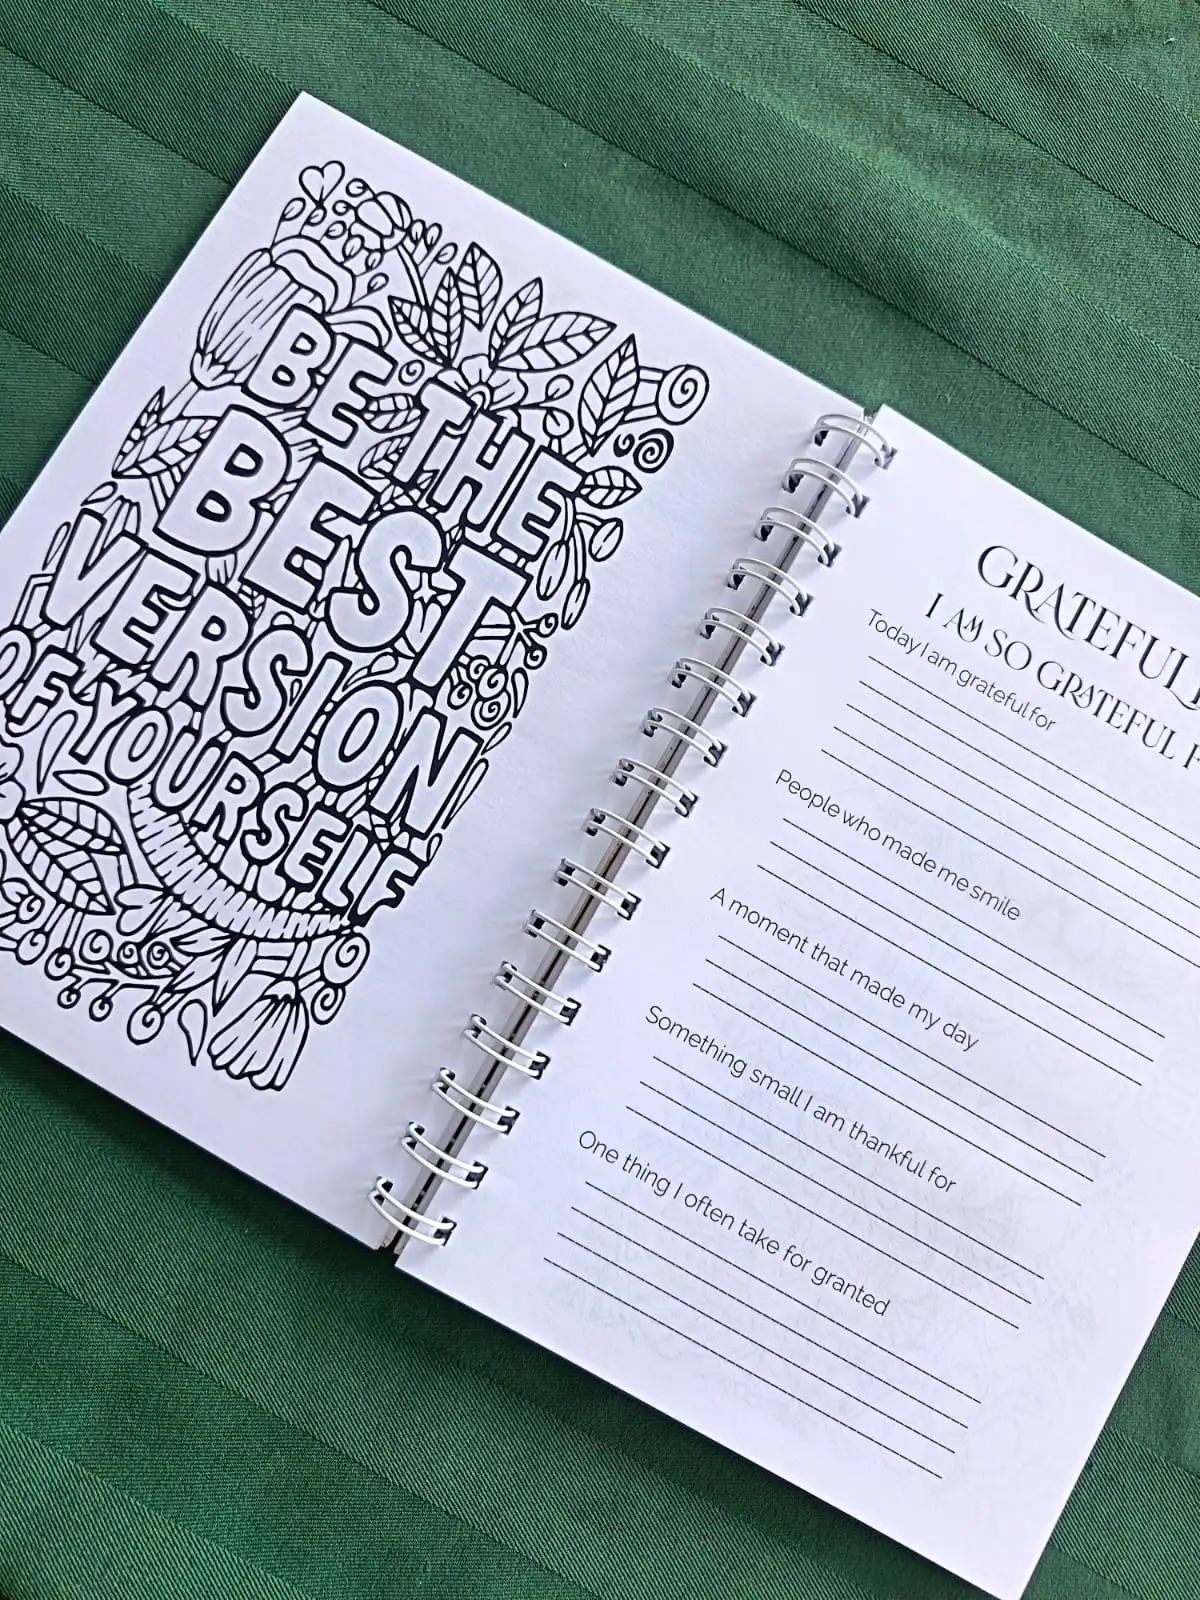 BE THE
BEST
VERSION
OF YOURSELF
GRATEFUL
I AM SO GRATEFUL F
Today I am grateful for
People who made me smile
A moment that made my day
Something small I am thankful for
One thing I often take for granted